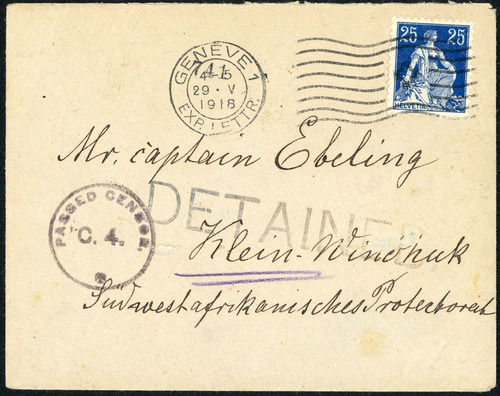 GENÈVE 1
4-5
29 · V.
1918
EXP. LETTR.
25 25
HELVETIA
Mr. captain Ebeling
DETAINED
PASSED CENSOR
C. 4.
Klein-Windhuk
Südwestafrikanisches Protectorat